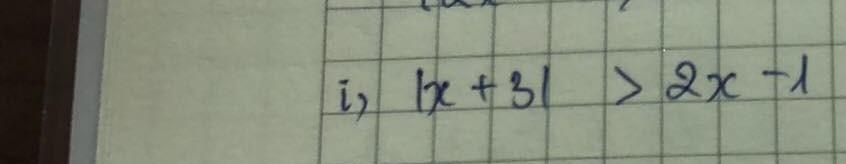 i, |x + 3| > 2x - 1